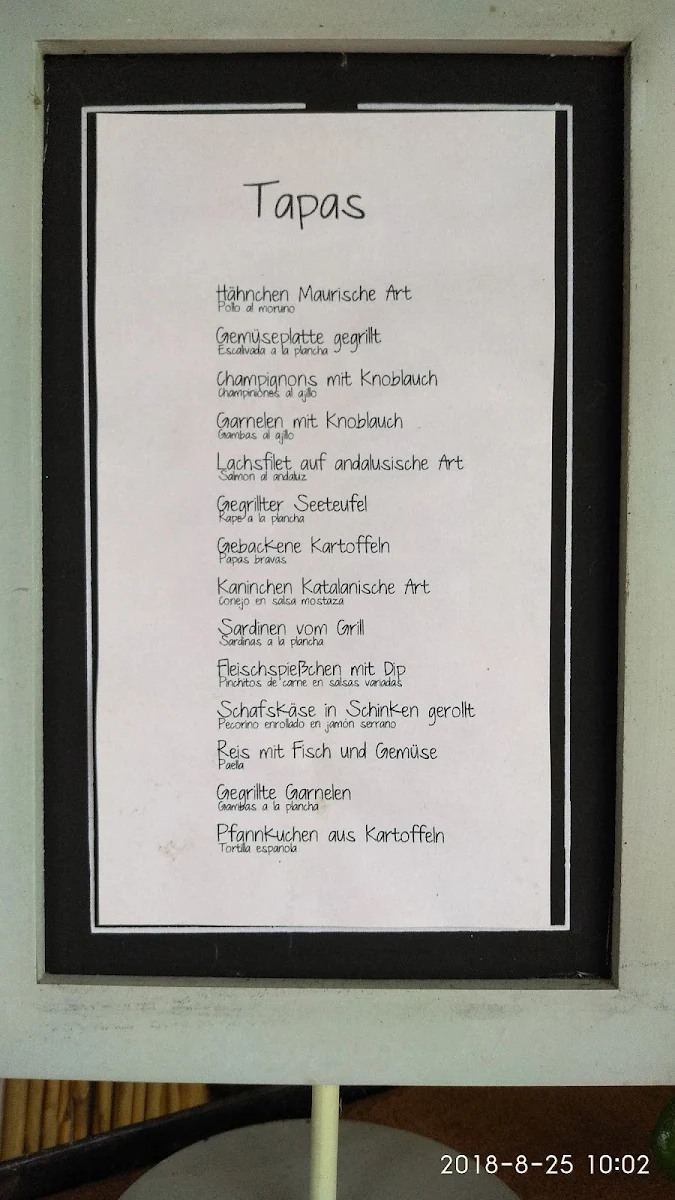 Tapas
Hähnchen Maurische Art
Pollo al moruno
Gemüseplatte gegrillt
Escalivada a la plancha
Champignons mit Knoblauch
Champiniónes al ajillo
Garnelen mit Knoblauch
Gambas al ajillo
Lachsfilet auf andalusische Art
Salmon al andaluz
Gegrillter Seeteufel
Rape a la plancha
Gebackene Kartoffeln
Papas bravas
Kaninchen Katalanische Art
Conejo en salsa mostaza
Sardinen vom Grill
Sardinas a la plancha
Fleischspießchen mit Dip
Pinchitos de carne en salsas variadas
Schafskäse in Schinken gerollt
Pecorino enrollado en jamón serrano
Reis mit Fisch und Gemüse
Paella
Gegrillte Garnelen
Gambas a la plancha
Pfannkuchen aus Kartoffeln
Tortilla espanola
2018-8-25 10:02